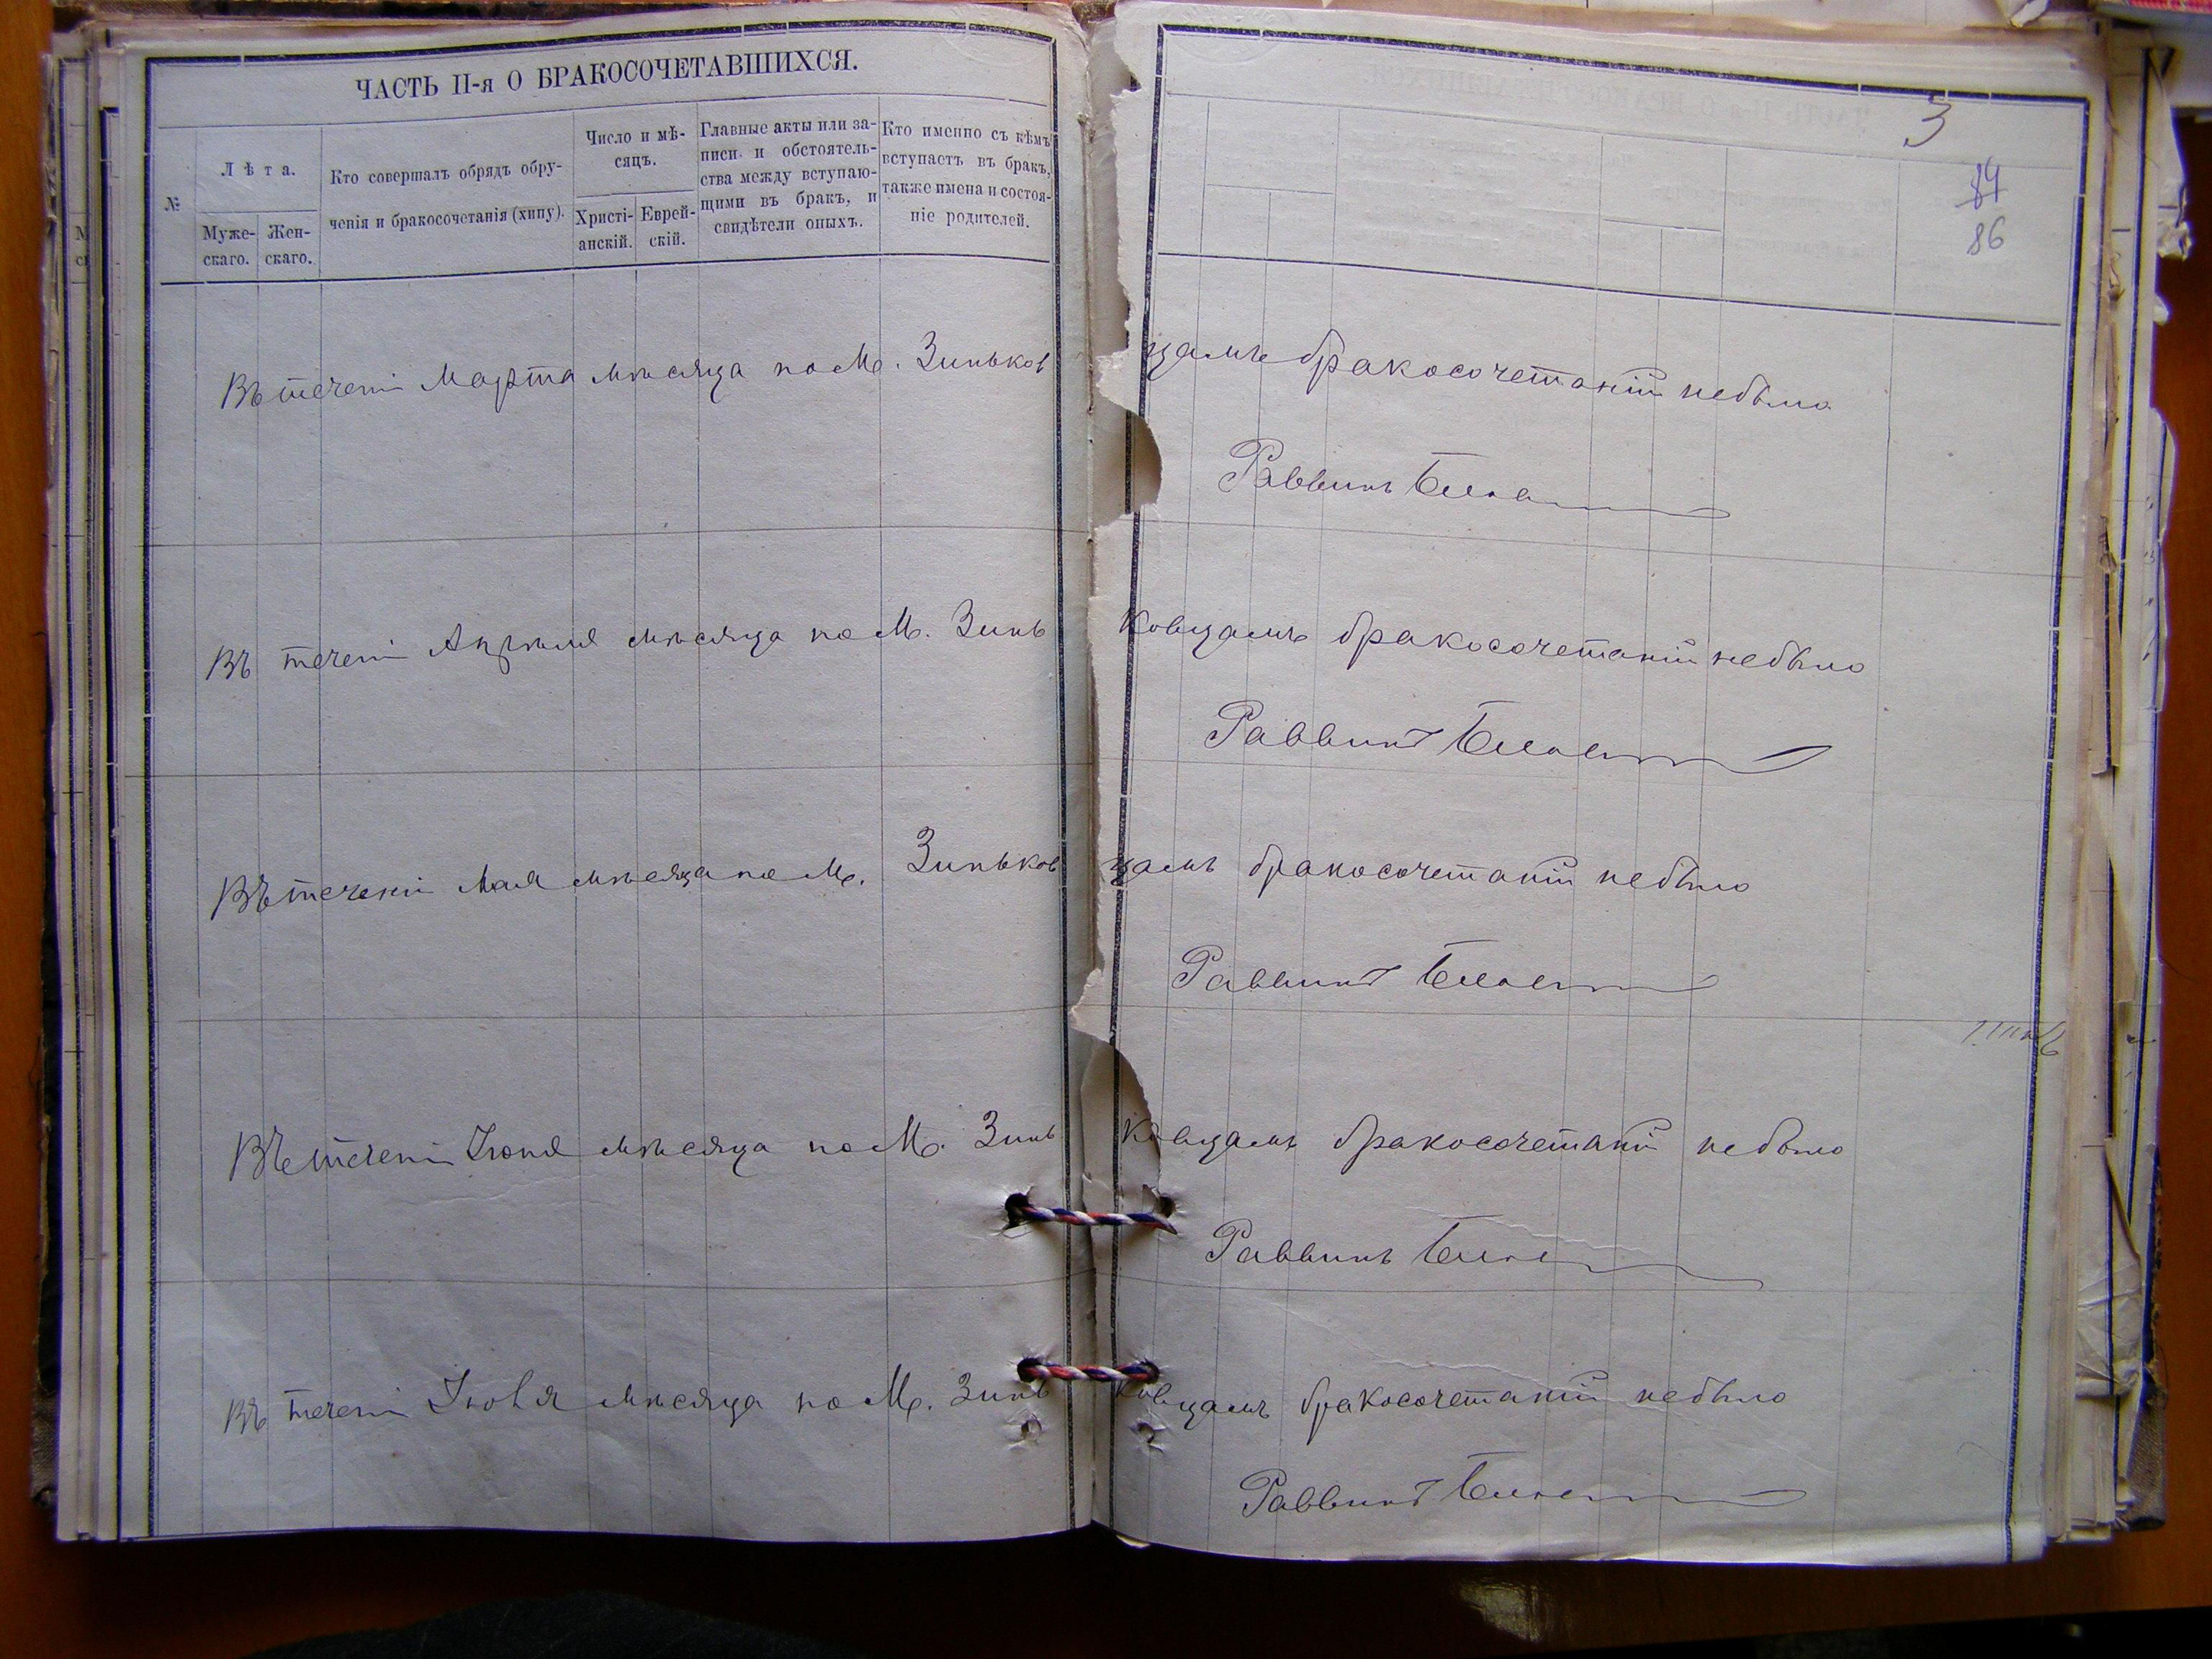 ЧАСТЬ II-я О БРАКОСОЧЕТАВШИХСЯ.
№
Лѣта.
Муже-
скаго.
Жен-
скаго.
Кто совершалъ обрядъ обру-
ченія и бракосочетанія (хипу).
Число и мѣ-
сяцъ.
Христі-
анскій.
Еврей-
скій.
Главные акты или за-
писи и обстоятель-
ства между вступаю-
щими въ бракъ, и
свидѣтели оныхъ.
Кто именно съ кѣмъ
вступаетъ въ бракъ,
также имена и состоя-
ніе родителей.
3
84
86
Въ течени Марта мѣсяца по М. Зиньковцамъ бракосочетаній небыло
Раввинъ
Въ течени Апрѣля мѣсяца по М. Зиньковцамъ бракосочетаній небыло
Раввинъ
Въ течени Мая мѣсяца по М. Зиньковцамъ бракосочетаній небыло
Раввинъ
Въ течени Іюня мѣсяца по М. Зиньковцамъ бракосочетаній небыло
Раввинъ
Въ течени Іюля мѣсяца по М. Зиньковцамъ бракосочетаній небыло
Раввинъ